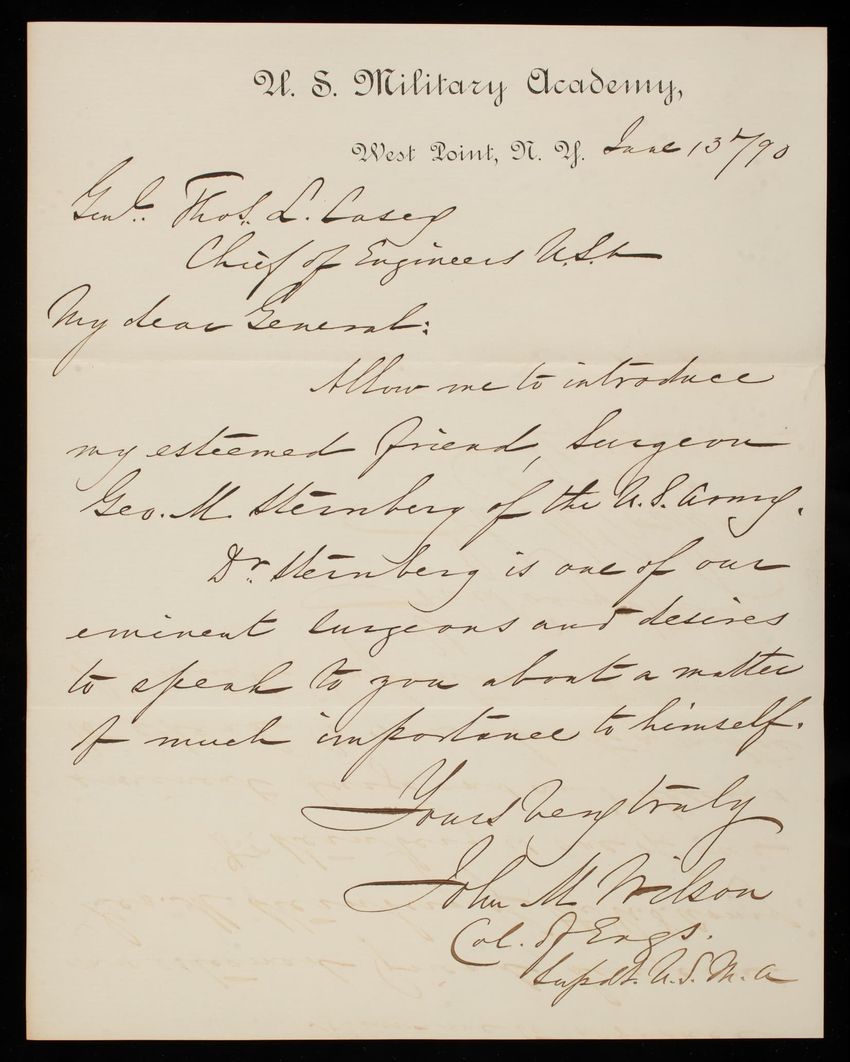 U. S. Military Academy,
West Point, N. Y. June 13th/90
Genl. Thos. L. Casey
Chief of Engineers U.S.A
My dear General:
Allow me to introduce
my esteemed friend, Surgeon
Geo. M. Sternberg of the U.S. Army.
Dr. Sternberg is one of our
eminent surgeons and desires
to speak to you about a matter
of much importance to himself.
Yours very truly
John M. Wilson
Col. of Engs.
Supdt. U.S.M.A